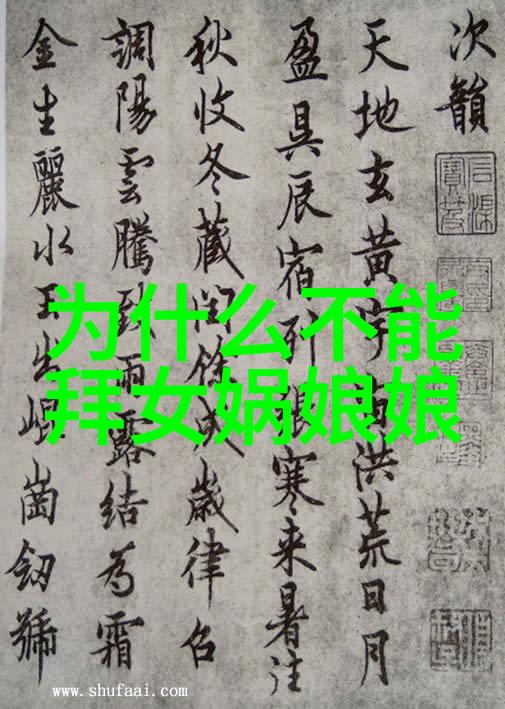 次韻
天地玄黄宇宙洪荒日月
盈昃辰宿列張寒来暑往
秋收冬藏閏餘成歲律召
調陽雲騰致雨露結為霜
金生麗水玉出崐崗劒號
为什么不能
拜女娲娘娘
www.shufaai.com